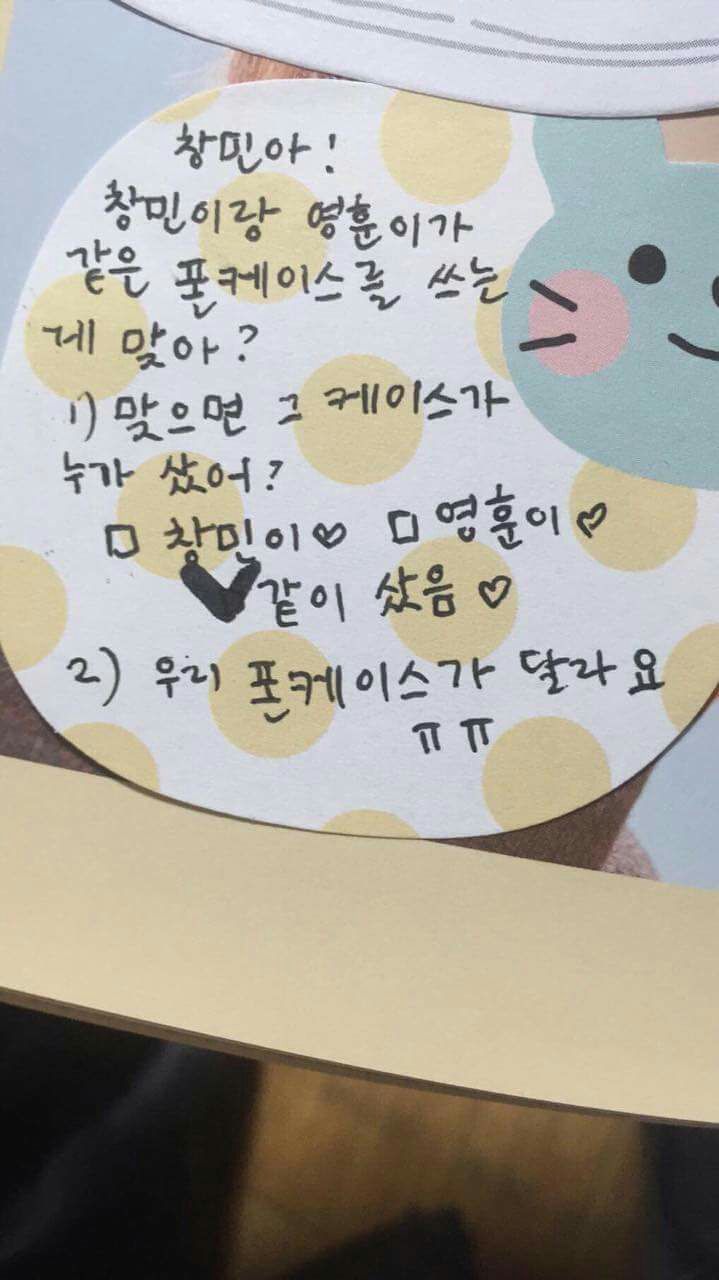 창민아!
창민이랑 영훈이가
같은 폰케이스를 쓰는
게 맞아?
1) 맞으면 그 케이스가
누가 샀어?
□ 창민이♡ □ 영훈이♡
✔같이 샀음♡
2) 우리 폰케이스가 달라요
ㅠㅠ